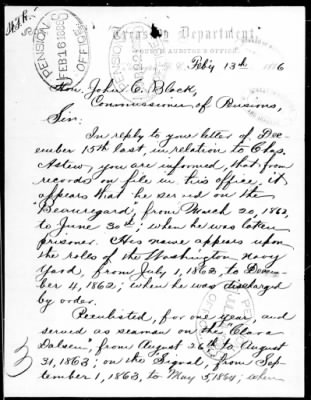 PENSION
FEB 16 1886
OFFICE
Treasury Department,
FOURTH AUDITOR'S OFFICE,
Feb'y 13th 1886
Hon. John C. Black,
Commissioner of Pensions,
Sir:
In reply to your letter of Dec-
ember 15th last, in relation to Chas.
you are informed, that from
records on file in this office, it
appears that he served on the
"Beauregard", from March 20, 1862,
to June 30th; when he was taken
prisoner. His name appears upon
the rolls of the Washington Navy
Yard, from July 1, 1862, to Decem-
ber 4, 1862; when he was discharged
by order.
Reenlisted, for one year, and
served as seaman on the "Clara
Dolsen", from August 26th to August
31, 1863; on the Signal, from Sep-
tember 1, 1863, to May 5, 1864; when
3